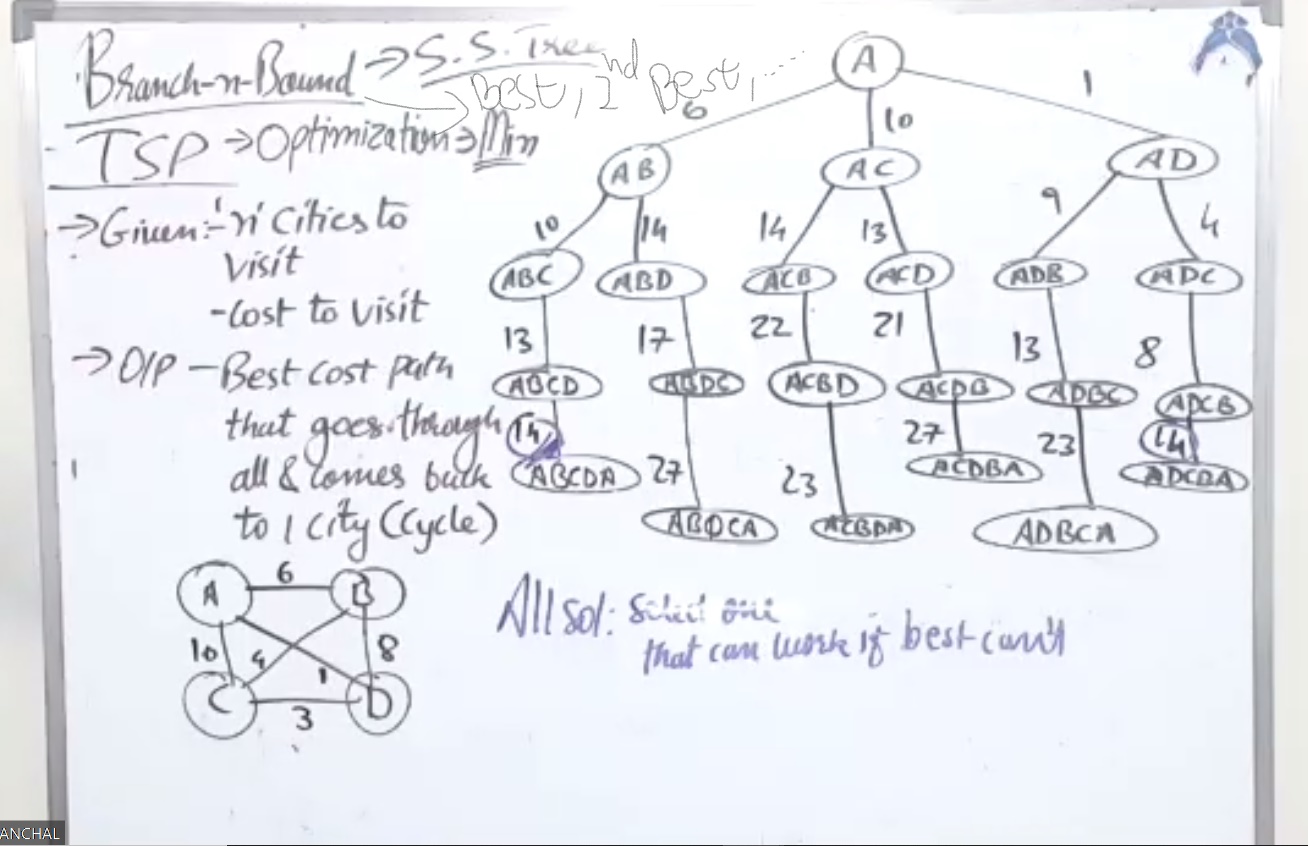 Branch-n-Bound → S.S. Tree
Best, 2nd Best, ....
TSP → Optimization → Min
→ Given:- 'n' Cities to
visit
- Cost to visit
→ O/P - Best cost path
that goes through
all & comes back
to 1 city (Cycle)
A 6 B
10 4 1 8
C 3 D
A
6 10 1
AB AC AD
10 14 14 13 9 4
ABC ABD ACB ACD ADB ADC
13 17 22 21 13 8
ABCD ABDC ACBD ACDB ADBC ADCB
14 27 23 27 23 14
ABCDA ABDCA ACBDA ACDBA ADBCA ADCBA
All sol: Select one
that can work if best can't
ANCHAL